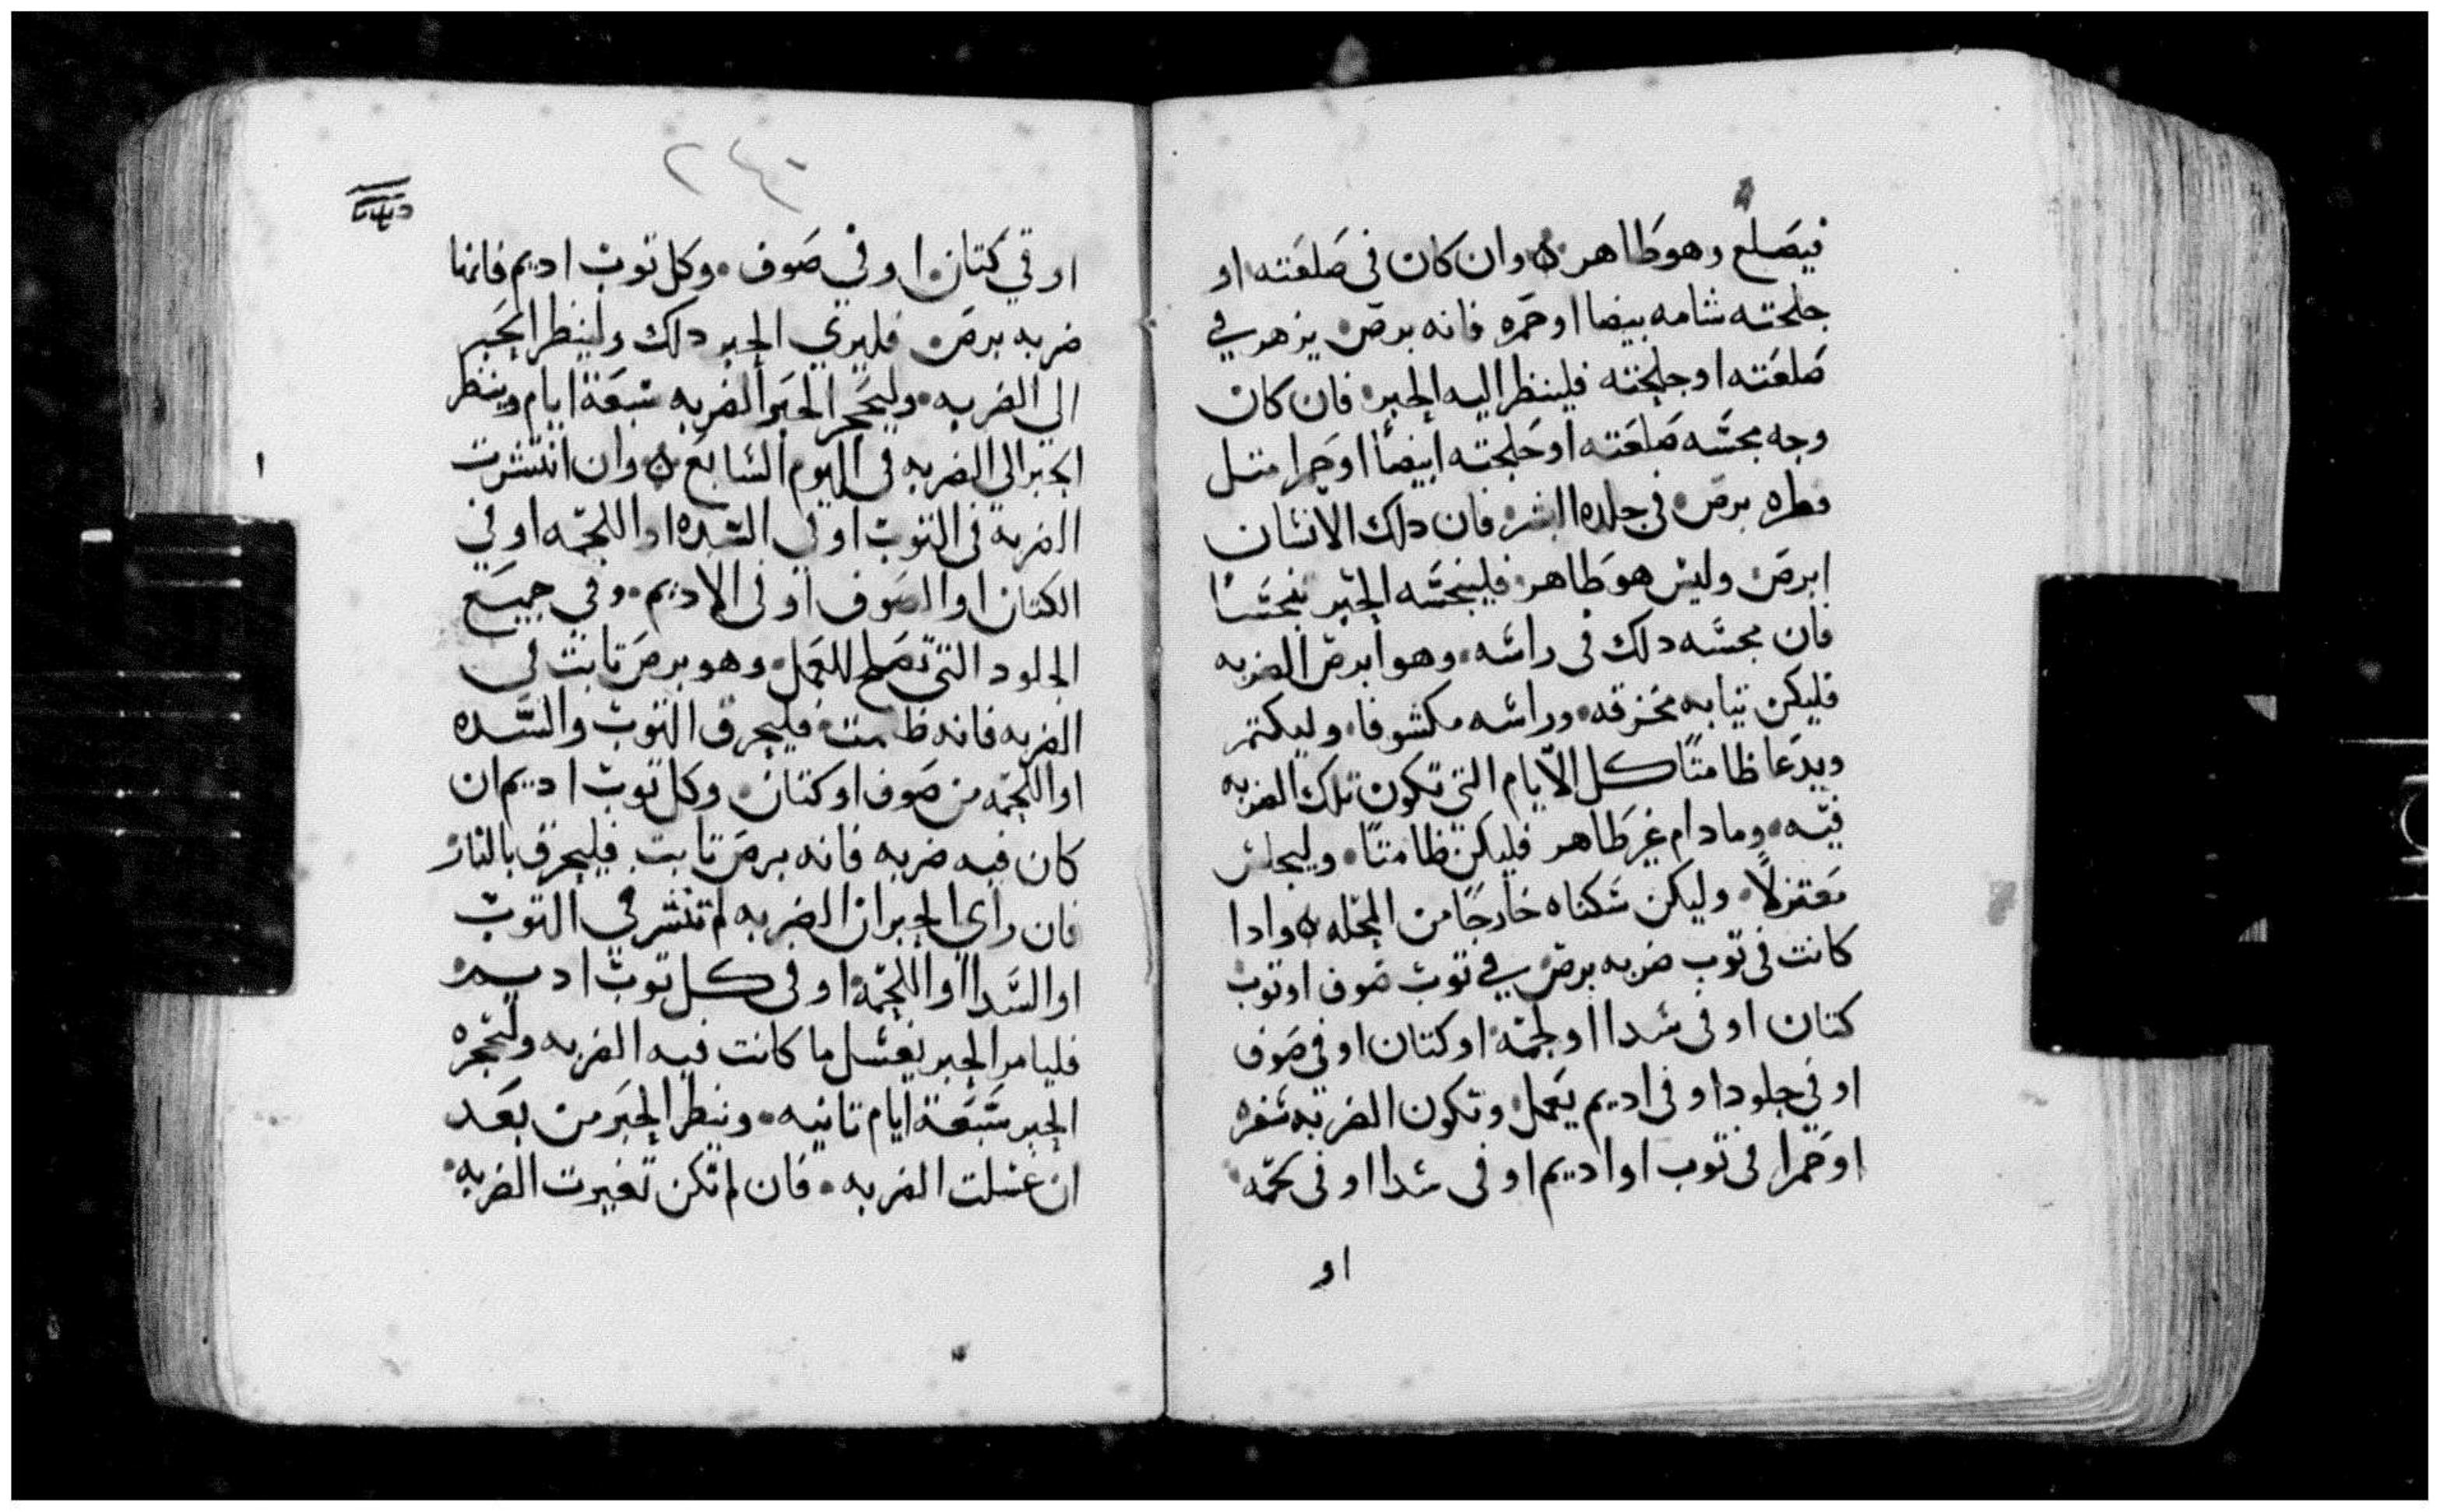 فيصلع وهو طاهر ه وان كان في صلعته او
جلحته شامه بيضا او حمره فانه برص يزهر في
صلعته او جلحته فلينظر اليه الحبر فان كان
وجه مجسه صلعته او جلحته ابيضا او حمرا متل
فطره برص في جلده البشر فان دلك الانسان
ابرص وليس هو طاهر فلينجسه الحبر بنجسا
فان مجسه دلك في راسه وهو ابرص الضربه
فليكن تيابه مخزقه وراسه مكشوفا وليكتتر
ويدعا ظامتا كل الايام التي تكون تلك الضربه
فيه وما دام غير طاهر فليكن ظامتا وليجلس
معتزلا وليكن سكناه خارجا من المحله ه وادا
كانت في توب ضربه برص في توب صوف او توب
كتان او في سدا او لحمه او كتان او في صوف
او في جلود او في اديم يعمل وتكون الضربه شفره
او حمرا في توب او اديم او في سدا او في لحمه
او
٢٤٠
او في كتان او في صوف وكل توب اديم فانها
ضربه برص فليري الحبر دلك ولينظر الحبر
الي الضربه وليحجر الحبر الضربه سبعة ايام وينظر
الحبر الي الضربه في اليوم السابع ه وان انتشرت
الضربه في التوب او في السده او اللحمه او في
الكتان او الصوف او في الاديم وفي جميع
الجلود التي تصلح للعمل وهو برص تابت في
الضربه فانه ظامت فليحرق التوب والسده
او اللحمه من صوف او كتان وكل توب اديم ان
كان فيه ضربه فانه برص تابت فليحرق بالنار
فان راي الحبر ان الضربه لم تنتشر في التوب
او السدا او اللحمة او في كل توب اديم
فليامر الحبر بغسل ما كانت فيه الضربه ولتحجره
الحبر سبعة ايام تانيه وينظر الحبر من بعد
ان غسلت الضربه فان لم تكن تغيرت الضربه